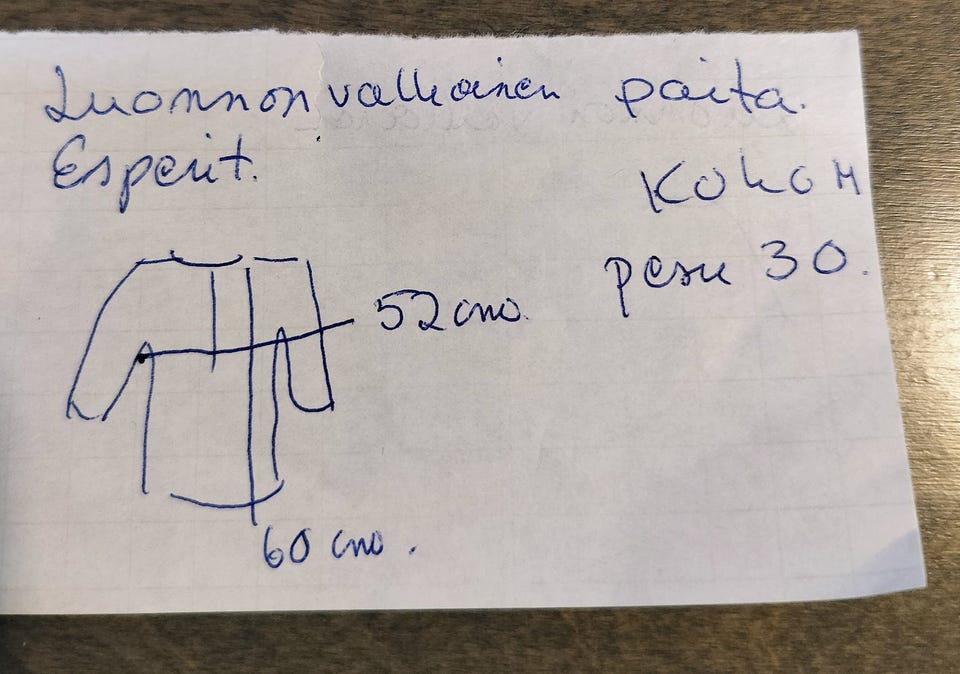 Luonnonvalkoinen paita.
Esperit.
Koko M
pesu 30.
52 cm.
60 cm.